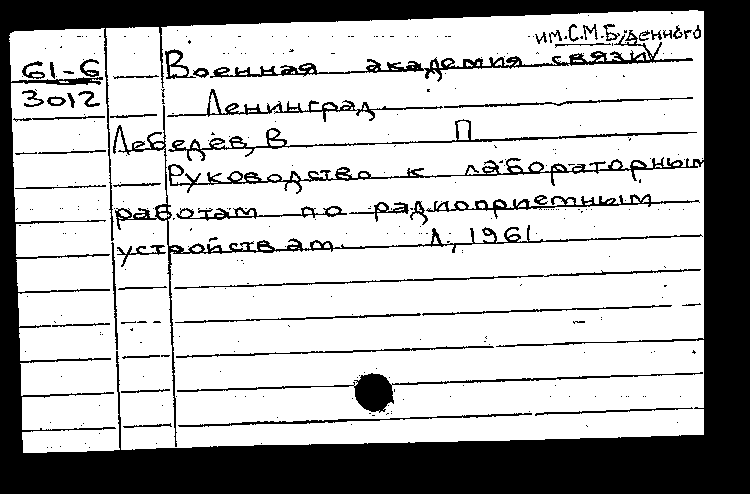 им. С.М. Буденного
61-6 Военная академия связи
3012 Ленинград
Лебедев, В П
Руководство к лабораторным
работам по радиоприемным
устройствам. Л., 1961